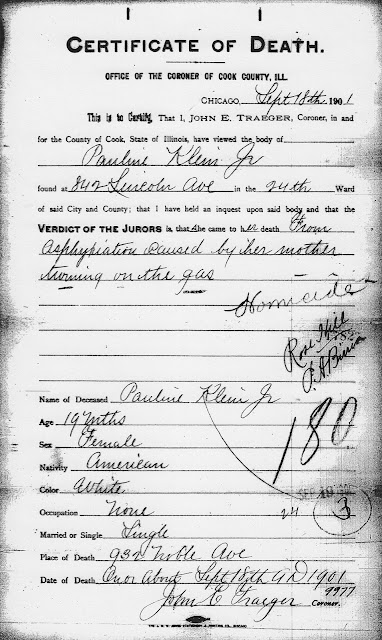 CERTIFICATE OF DEATH.
OFFICE OF THE CORONER OF COOK COUNTY, ILL.
CHICAGO, Sept 18th 1901
This is to Certify, That I, JOHN E. TRAEGER, Coroner, in and
for the County of Cook, State of Illinois, have viewed the body of
Pauline Klein Jr
found at 842 Lincoln Ave in the 24th Ward
of said City and County; that I have held an inquest upon said body and that the
VERDICT OF THE JURORS is, that she came to er death From
Asphyxiation caused by her mother
turning on the gas
Homicide
Rose Hill
Name of Deceased Pauline Klein Jr
180
Age 19 Mths
Sex Female
Nativity American
Color White
SEP 19
Occupation None 24
3
Married or Single Single
Place of Death 932 Noble Ave
Date of Death On or About Sept 18th AD 1901
9977
John E Traeger Coroner.